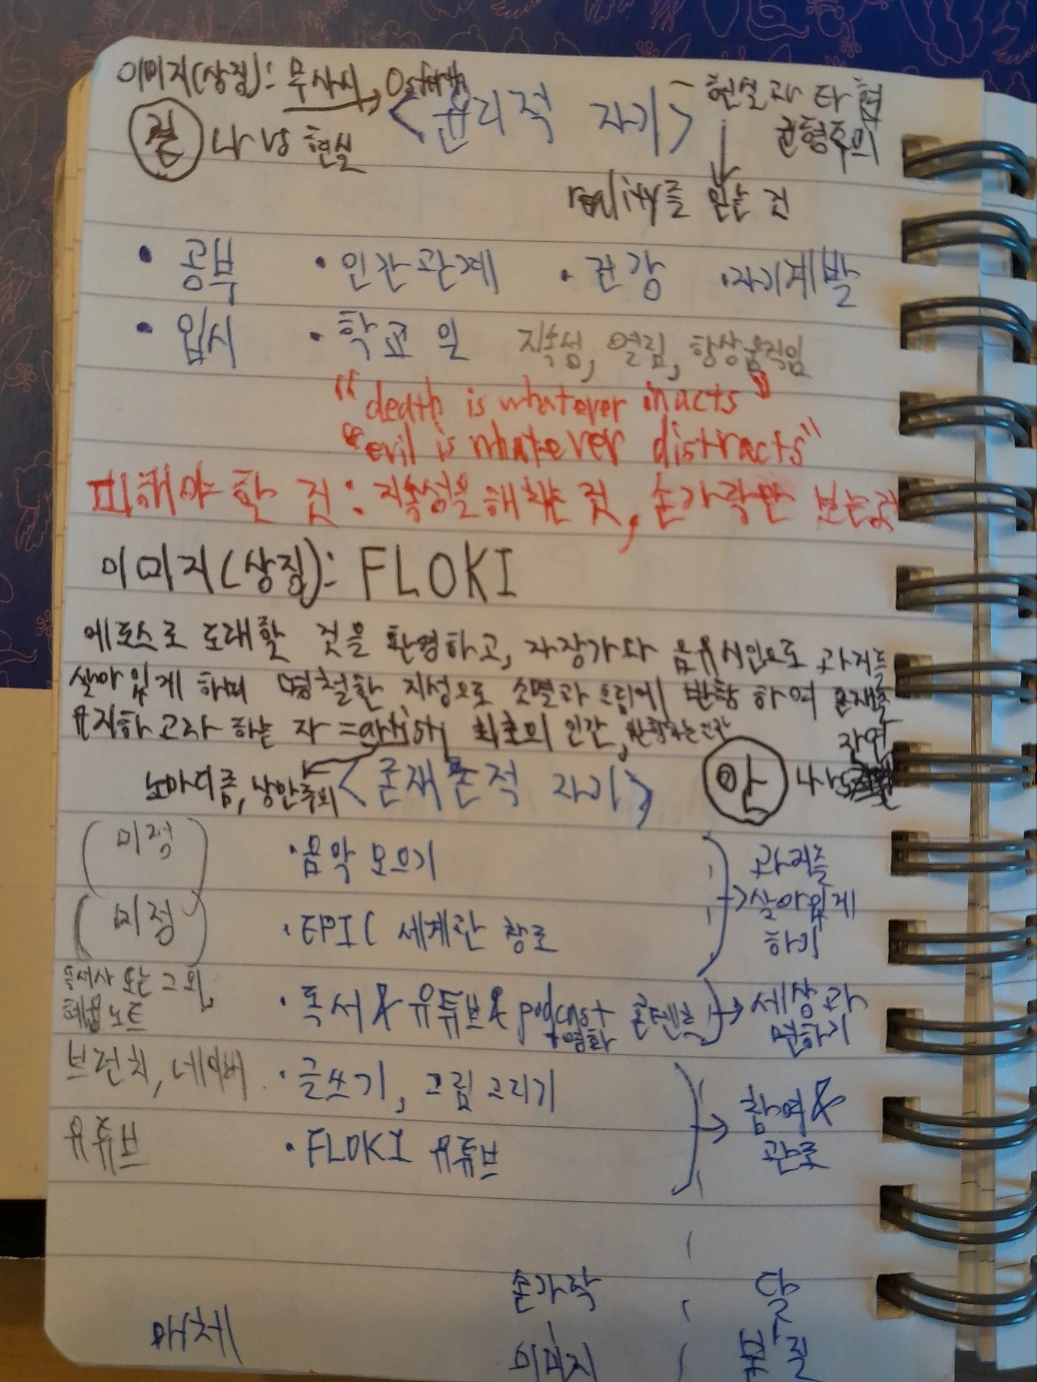 이미지(상징): 무사시 →
<윤리적 자기> - 현실과 타협
균형주의
겉 나 넝 현실
reality를 얻는 것
• 공부 • 인간관계 • 건강 • 자기계발
• 입시 • 학교 일 지속성, 열림, 항상 움직임
"death is whatever inacts"
"evil is whatever distracts"
피해야 할 것: 지속성을 해치는 것, 손가락만 보는것
이미지(상징): FLOKI
에로스로 도래할 것을 환영하고, 자장가와 음유시인으로 과거를
살아있게 하며 명철한 지성으로 소멸과 흐림에 반항하여 존재를
유지하고자 하는 자 = artist, 최초의 인간, 반항하는 인간
노마디즘, 낭만주의 <존재론적 자기> 안 나 자연
(미정) • 음악 모으기 과거를
(미정) • EPIC 세계관 창조 → 살아있게
하기
독서사 또는 그외,
노트 • 독서 & 유튜브 & podcast 콘텐츠 → 세상과
+영화 면하기
브런치, 네이버 • 글쓰기, 그림 그리기 → 참여 &
유튜브 • FLOKI 유튜브 관조
손가락 달
매체 이미지 본질